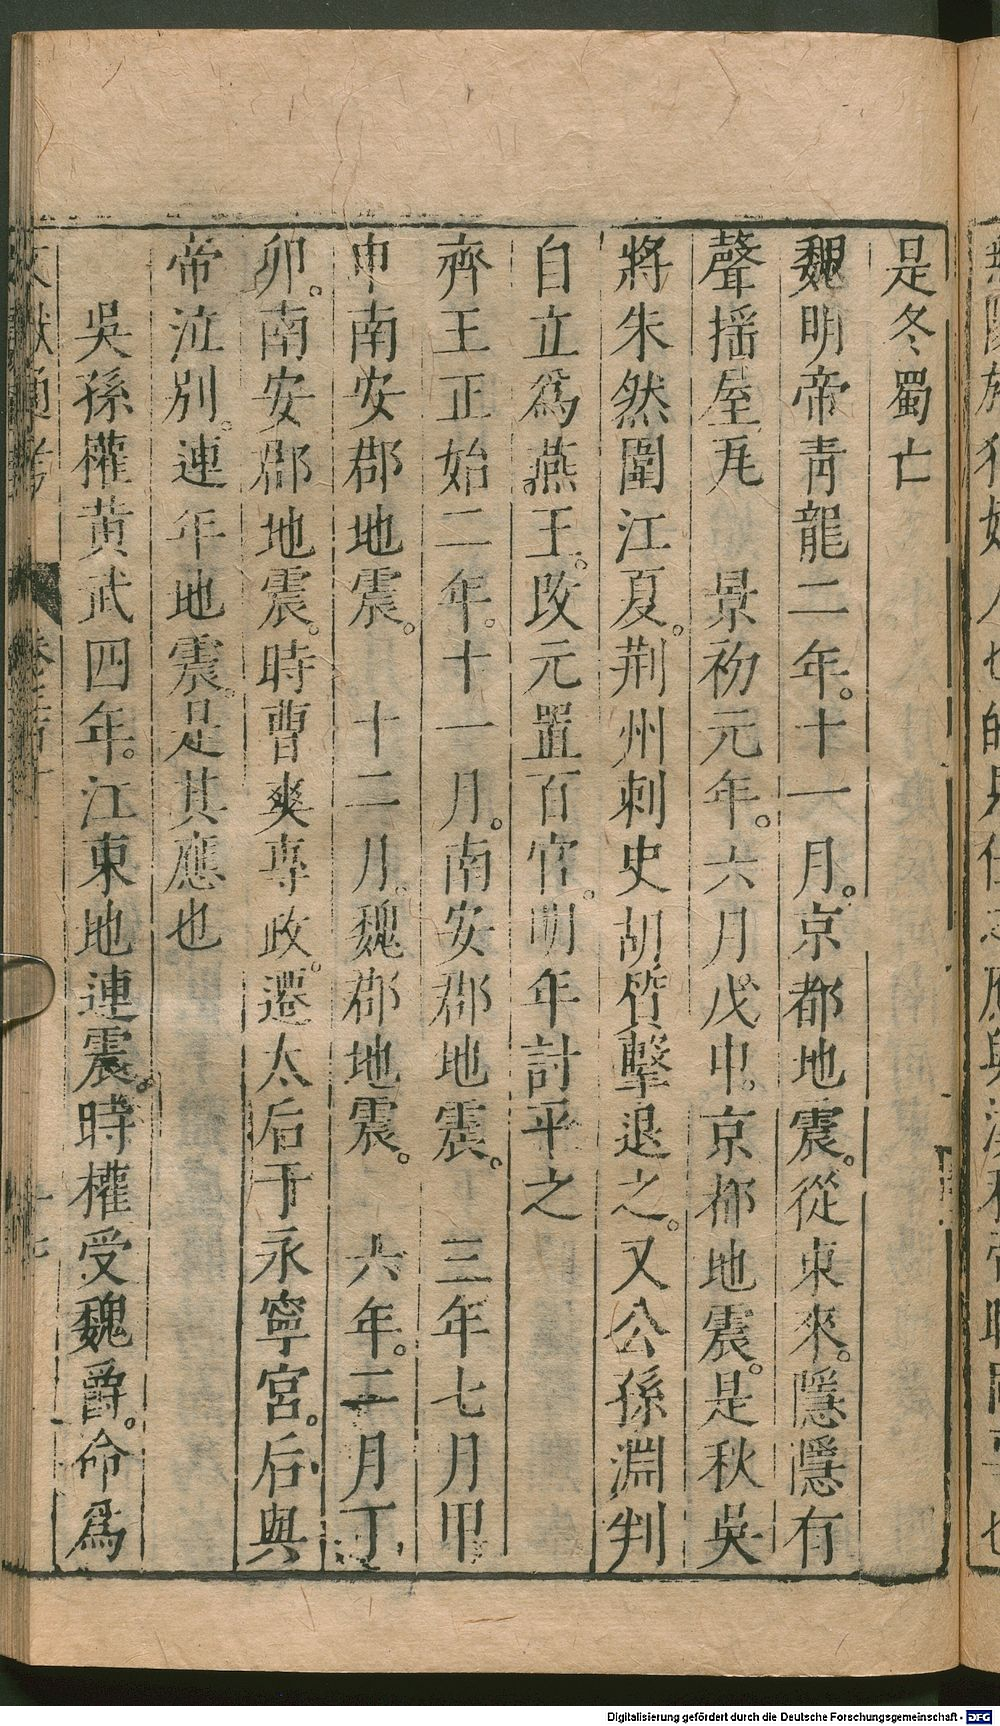 是冬蜀亡
魏明帝靑龍二年。十一月。京都地震。從東來。隱隱有
聲揺屋瓦　景初元年。六月。戊申。京都地震。是秋吳
將朱然圍江夏。荆州刺史胡質擊退之。又公孫淵判
自立爲燕王。改元置百官。明年討平之
齊王正始二年。十一月。南安郡地震。　三年七月甲
申南安郡地震。　十二月。魏郡地震。　六年。二月丁
卯。南安郡地震。時曹爽專政。遷太后于永寧宮。后與
帝泣別。連年地震。是其應也。
吳孫權黃武四年。江東地連震。時權受魏爵。命爲
文獻通考
十七
Digitalisierung gefördert durch die Deutsche Forschungsgemeinschaft - DFG